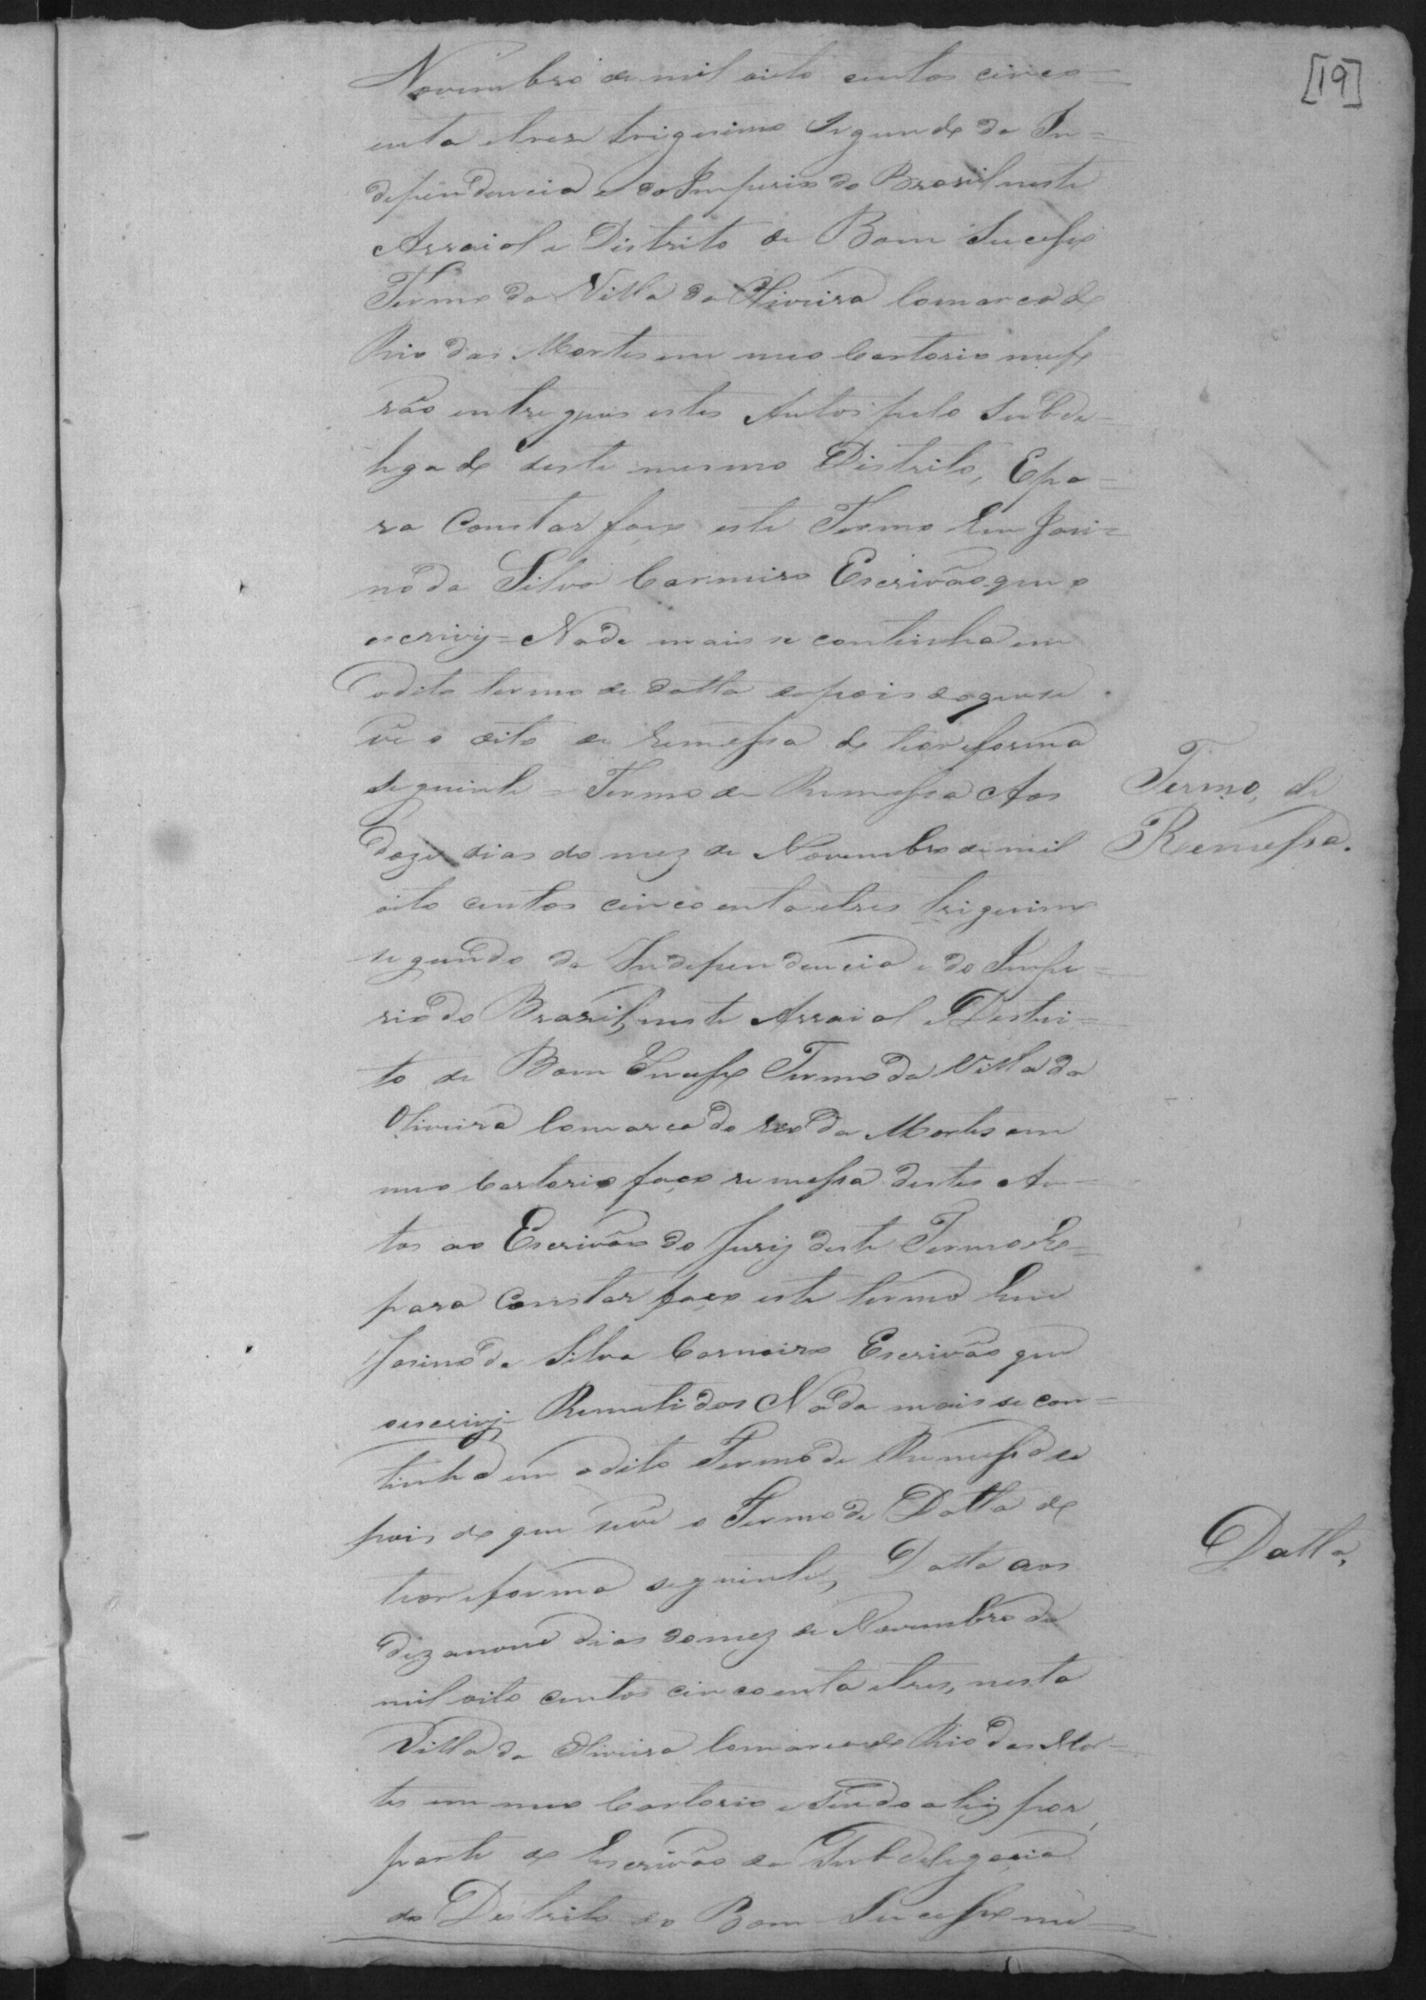 [19]
Novembro de mil oito centos cinco=
enta etres trigesimo Segundo da In=
dependencia e do Imperio do Brasil neste
Arraial e Distrito de Bom Sucesso
Termo da Villa da Oliveira Comarca do
Rio das Mortes em meo Cartorio me fo
rão entregues estes Autos pelo Subde=
legado deste mesmo Distrito, Epa=
ra Constar faço este Termo Eu Josi=
no da Silva Carneiro Escrivão que o
escrivy= Nada mais se continha em
odito termo de datta depois do que se
via o dito de remessa do tior eforma
seguinte = Termo de Remessa Aos
Termo, de
Remessa.
doze dias do mez de Novembro de mil
oito centos cincoenta etres trigesimo
segundo da Independencia e do Impe=
rio do Brasil, neste Arraial e Distri=
to de Bom Sucesso Termo da Villa da
Oliveira Comarca do Rio da Mortes em
meo Cartorio faço remessa destes Au=
tos ao Escrivão do Jury deste Termo E=
para Constar faço este termo Eu
Josino da Silva Carneiro Escrivão que
o escrivy= Remetidos Nada mais se con=
tinha em odito Termo de Remessa de
pois do que se via o Termo de Datta do
Datta,
tior eforma seguinte, Datta aos
dezanove dias do mez de Novembro de
mil oito centos cincoenta etres, nesta
Villa da Oliveira Comarca do Rio das Mor=
tes em meo Cartorio e sendo ahy por
parte do Escrivão da Subdelegacia
do Distrito do Bom Sucesso me=